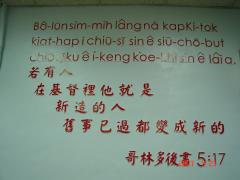 Bô-lūn sím-mih lâng nā kap Ki-tok
kiat-hap i chiū-sī sin ê siū-chō-but
kū ê í-keng kòe-khì sin ê lâi à.
若有人
在基督裡他就是
新造的人
舊事已過都變成新的
哥林多後書 5:17